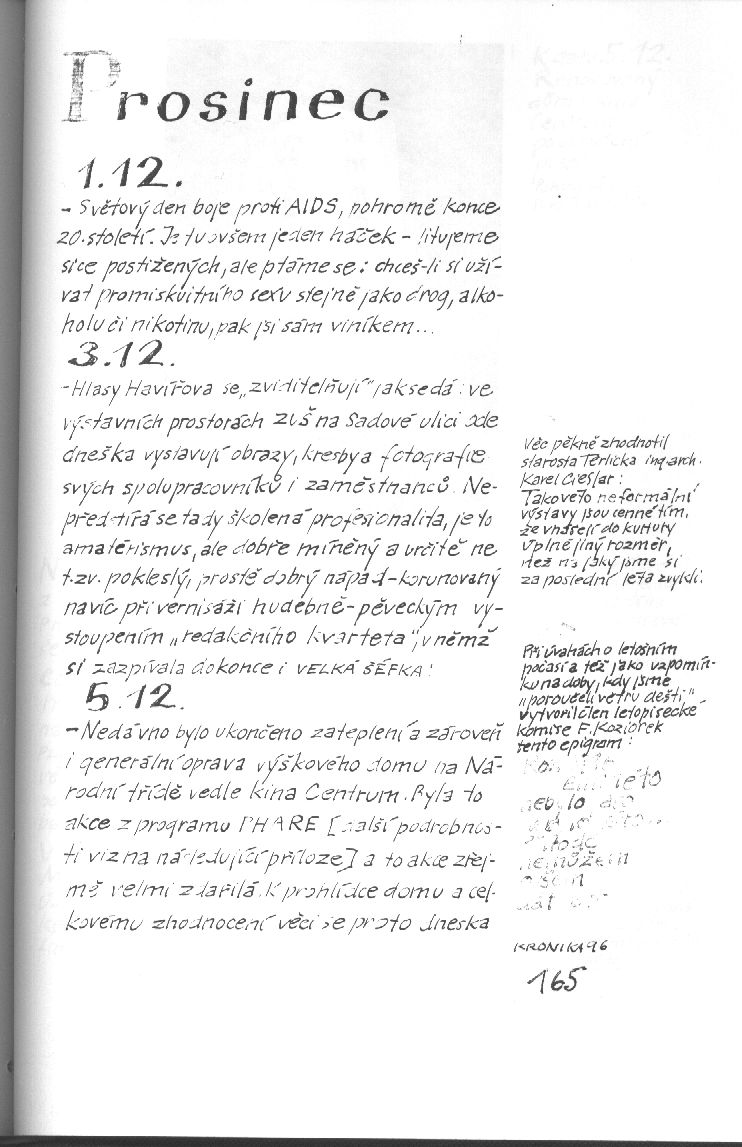 Prosinec
1.12.
- Světový den boje proti AIDS, pohromě konce
20. století. Je tu ovšem jeden háček - litujeme
sice postižených, ale ptáme se: chceš-li si uží-
vat promiskuitního sexu stejně jako drog, alko-
holu či nikotinu, pak jsi sám viníkem...
3.12.
- Hlasy Havířova se „zviditelňují" jak se dá: ve
výstavních prostorách ZUŠ na Sadové ulici ode
dneška vystavují obrazy, kresby a fotografie
svých spolupracovníků i zaměstnanců. Ne-
předstírá se tady školená profesionalita, je to
amatérismus, ale dobře míněný a určitě ne
t.zv. pokleslý, prostě dobrý nápad - korunovaný
navíc při vernisáži hudebně-pěveckým vy-
stoupením „redakčního kvarteta", v němž
si zazpívala dokonce i VELKÁ ŠÉFKA!
5.12.
- Nedávno bylo ukončeno zateplení a zároveň
i generální oprava výškového domu na Ná-
rodní třídě vedle kina Centrum. Byla to
akce z programu PHARE [další podrobnos-
ti viz na následující příloze] a to akce zřej-
mě velmi zdařilá. K prohlídce domu a cel-
kovému zhodnocení věci se proto dneska
Věc pěkně zhodnotil
starosta Těrlicka ing.arch.
Karel Cieślar:
Takovéto neformální
výstavy jsou cenné tím,
že vnášejí do kultury
úplně jiný rozměr,
než na jaký jsme si
za poslední léta zvykli.
Při úvahách o letošním
počasí a též jako vzpomín-
ku na doby, kdy jsme
„poroučeli větru dešti"
vytvořil člen letopisecké
komise F. Koziorek
tento epigram:
léto
nebylo
nemůžem
KRONIKA 96
165